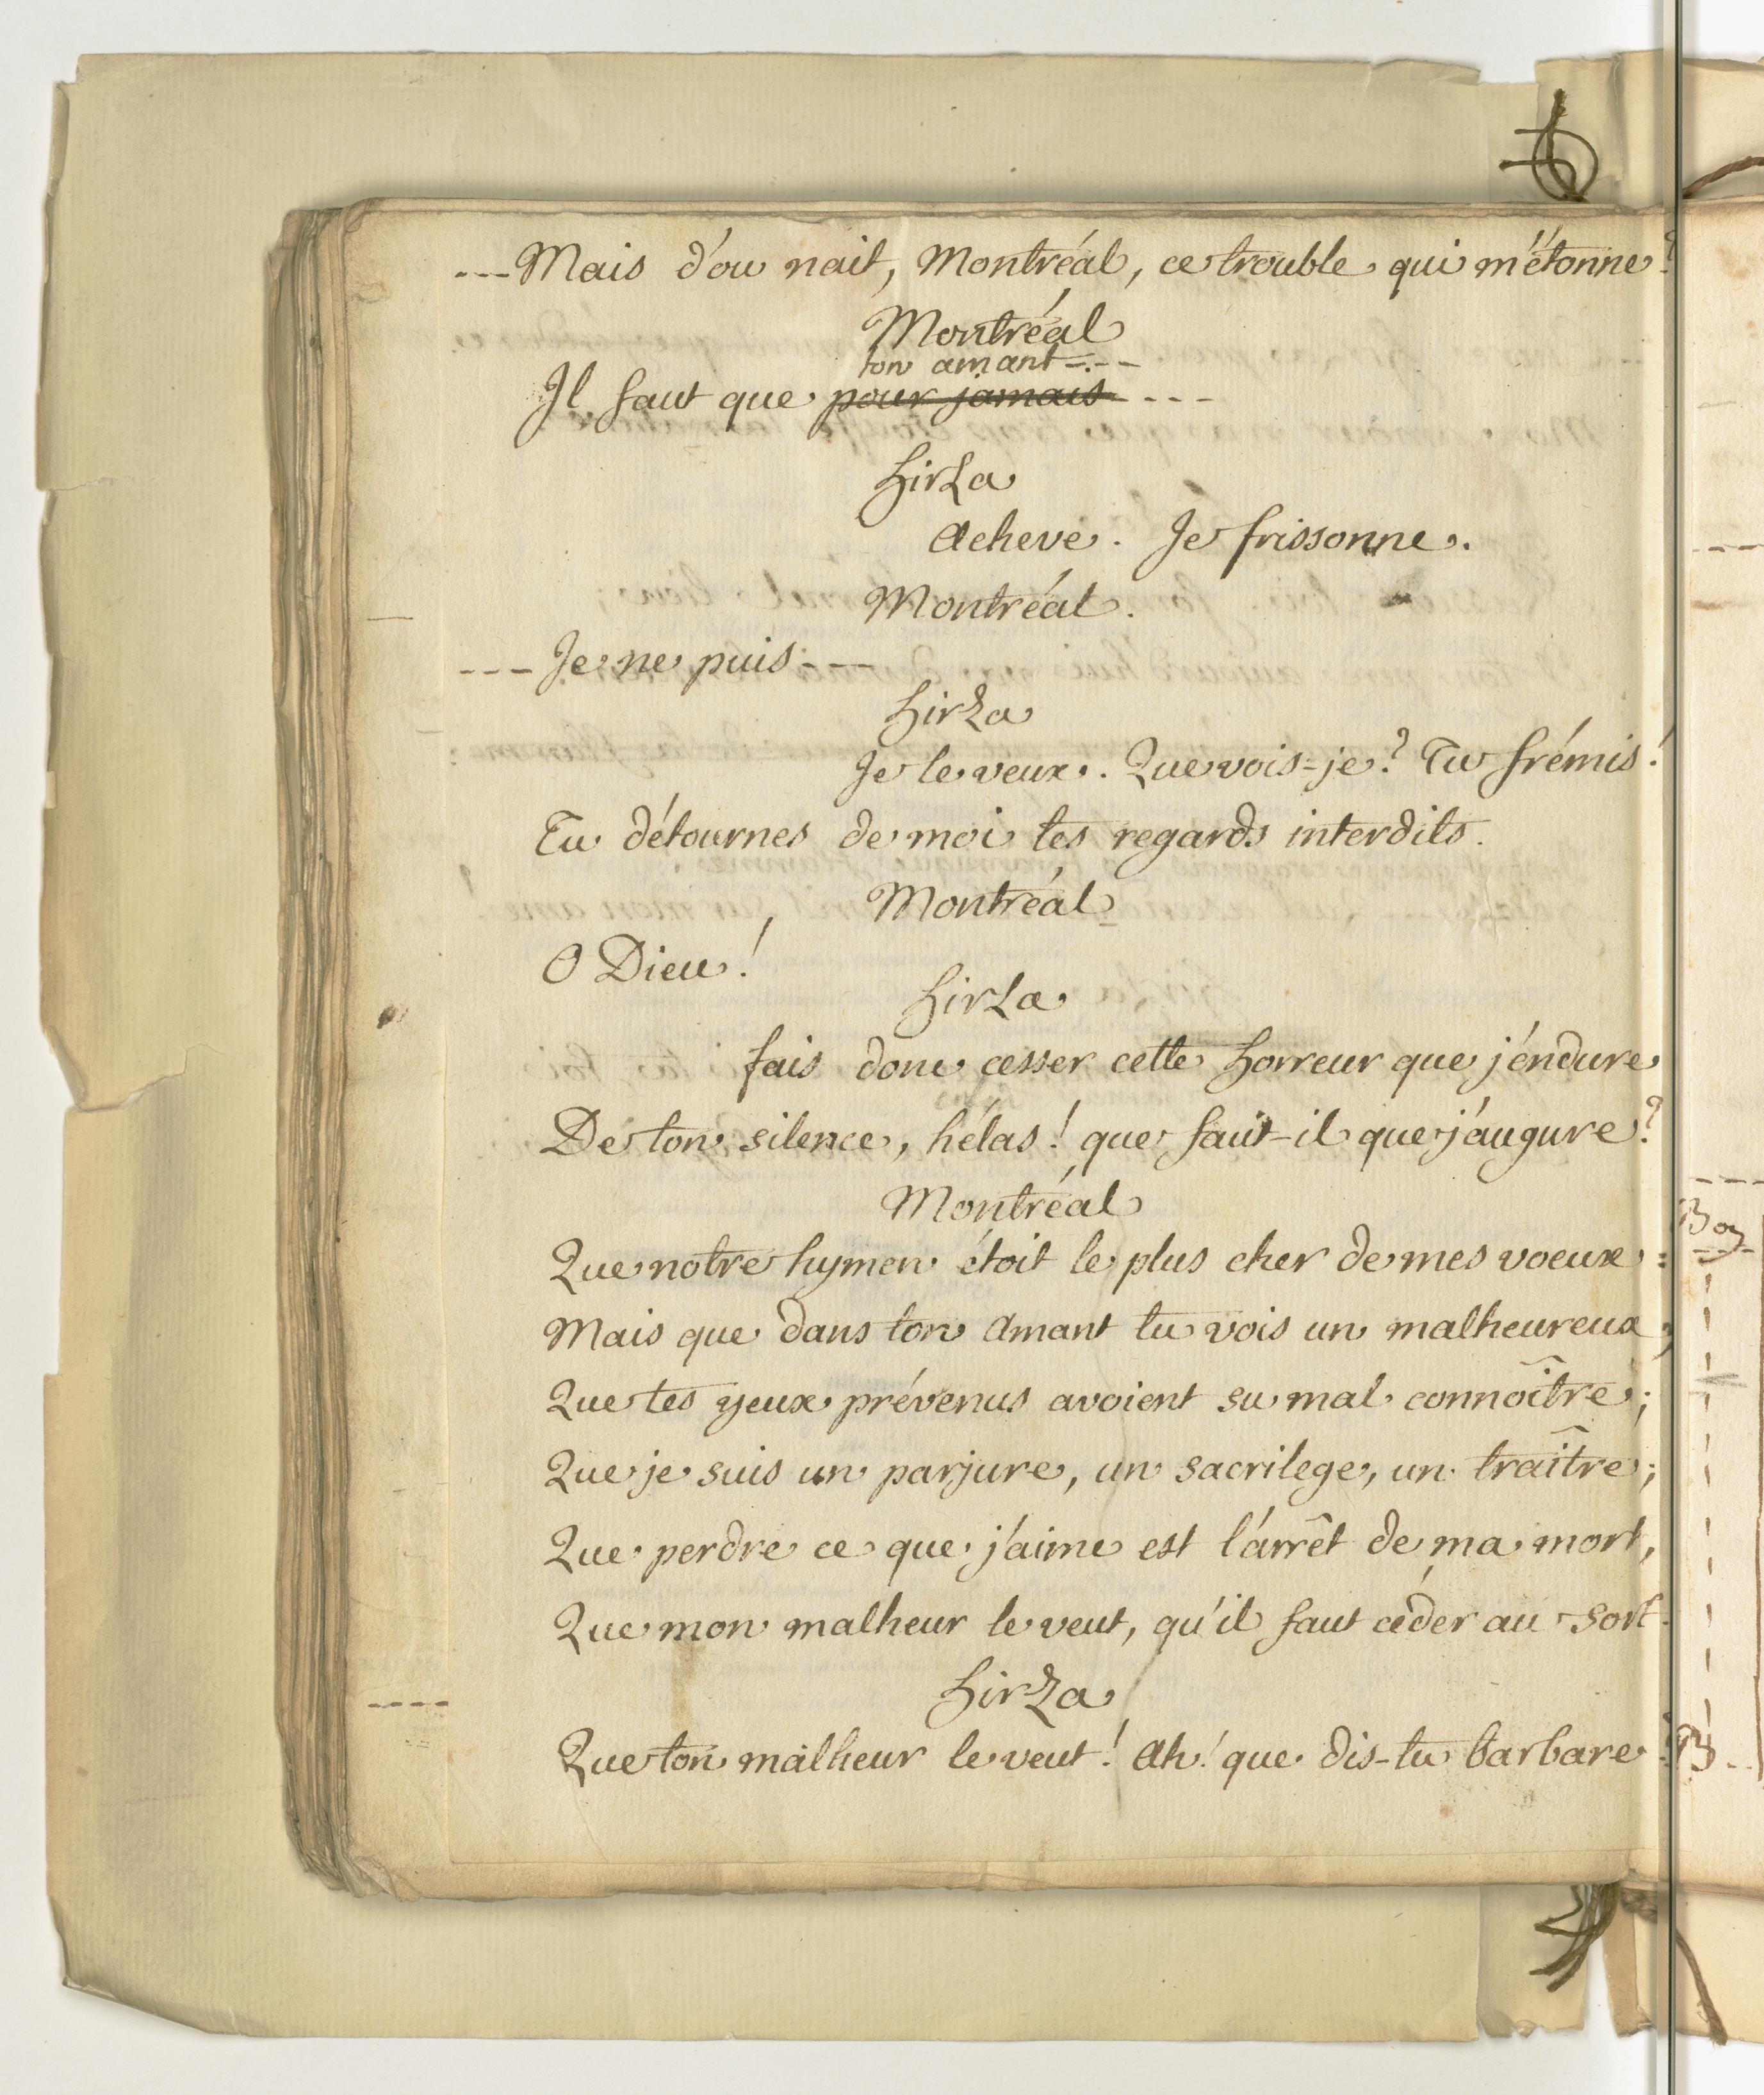 ---Mais d'ou nait, Montréal, ce trouble qui m'étonne?
Montréal
ton amant---
Il faut que pour jamais----
hirza
Acheve. Je frissonne.
Montréal.
---Je ne puis---
hirza
Je le veux. Que vois-je? Tu frémis!
Tu détournes de moi tes regards interdits.
Montréal
O Dieu!
hirza
fais donc cesser cette horreur que j'endure
De ton silence, hélas! que faut-il que j'augure?
Montréal
Que notre hymen étoit le plus cher de mes voeux:
Mais que dans ton Amant tu vois un malheureux,
Que tes yeux prévenus avoient su mal connoître;
Que je suis un parjure, un sacrilege, un traître;
Que perdre ce que j'aime est l'arrêt de ma mort,
Que mon malheur le veut, qu'il faut céder au sort.
hirza
Que ton malheur le veut! Ah! que dis-tu barbare?